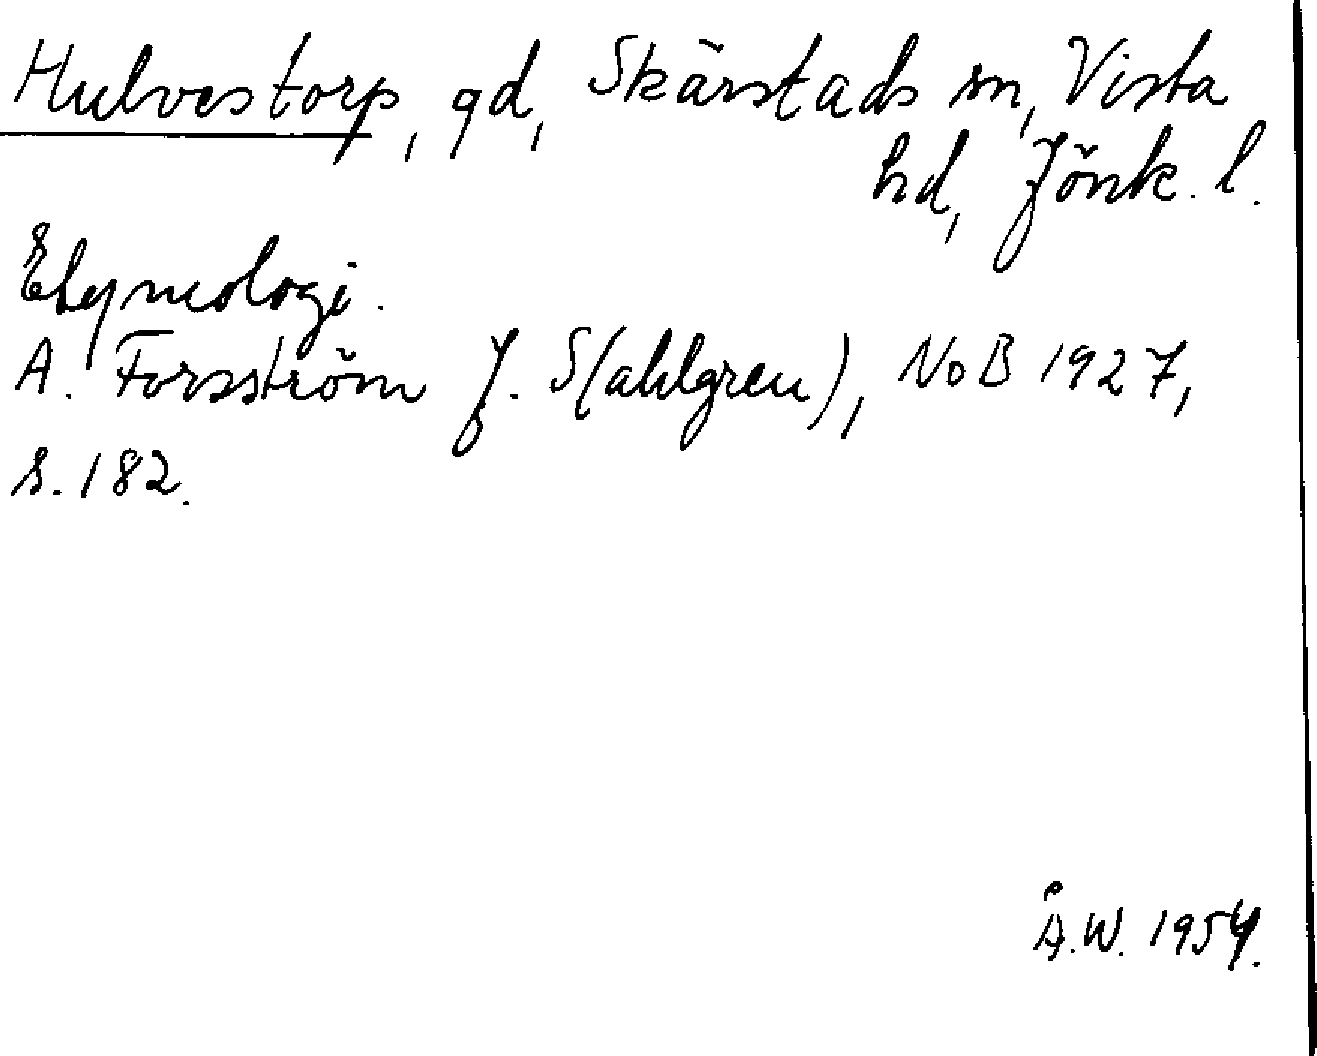 Hulvestorp, gd, Skärstads sn, Vista
hd, Jönk. l.
Etymologi.
A. Forsström J. S(ahlgren), NoB 1927,
s. 182.
Å.W. 1954.